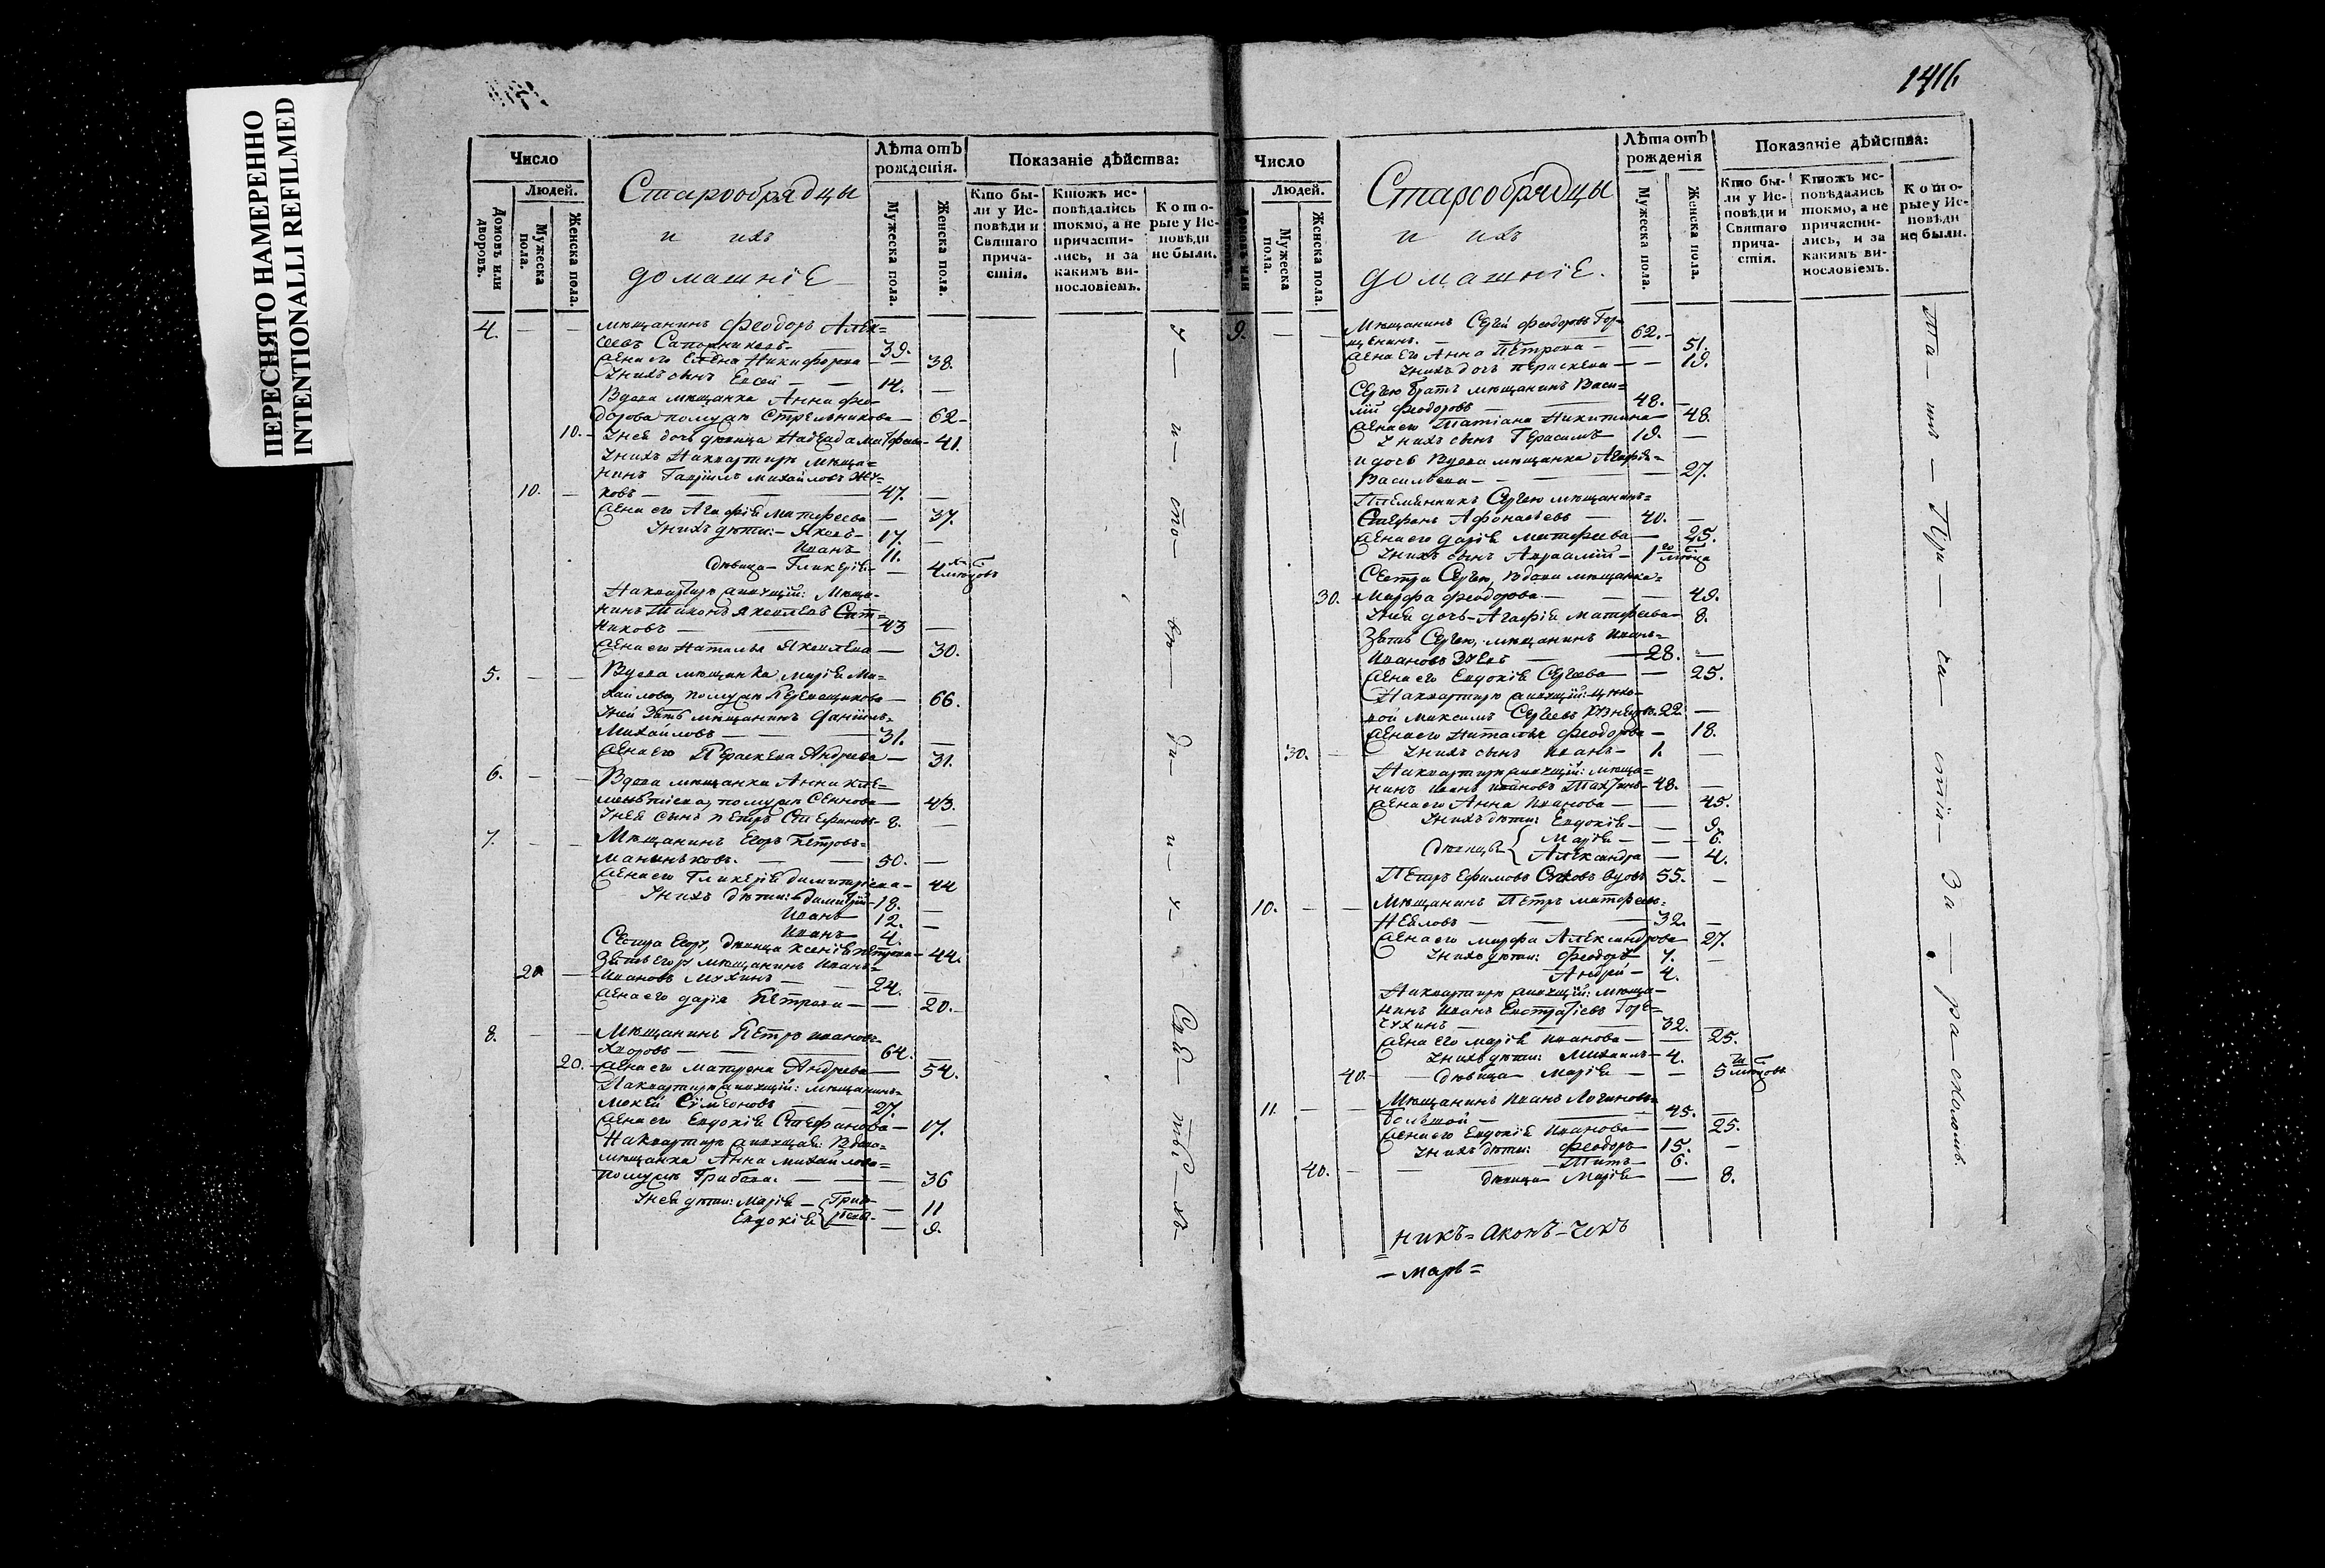 ПЕРЕСНЯТО НАМЕРЕННО
INTENTIONALLI REFILMED
1416
Число
Людей.
Домовъ или дворовъ.
Мужеска пола.
Женска пола.
Старообрядцы
и ихъ
домашніе
Лѣта отъ
рожденія.
Мужеска пола.
Женска пола.
Показаніе дѣйства:
Кто бы-
ли у Ис-
повѣди и
Святаго
прича-
стія.
Ктожъ ис-
повѣдались
токмо, а не
причасти-
лись, и за
какимъ ви-
нословіемъ.
Кото-
рые у Ис-
повѣди
не были.
4. — — Мѣщанинъ Феодоръ Алек=
сеевъ Сапожниковъ — 39.
Жена его Елена Никифорова — 38.
У нихъ сынъ Елсей — — 14. —
Вдова мѣщанка Анна Фео-
дорова по мужѣ Стрельникова — 62
10. У ней дочь девица Надежда Матфеева — 41.
У нихъ на квартирѣ мѣща=
нинъ Гавріилъ Михайловъ
10. — ковъ — 47. —
Жена его Агафія Матфеева — 37.
У нихъ дѣти: — Яковъ — 17. —
Иванъ 11.
дѣвица — Гликерія — 4 хъ мѣсяцовъ
На квартирѣ живущій: Мѣща-
нинъ Тихонъ Яковлевъ Сит=
никовъ — 43 —
Жена его Наталья Яковлева — 30.
5. — — Вдова мѣщанка Марія Ми=
хайлова, по мужѣ Перевощикова — 66.
У ней зять мѣщанинъ Даніилъ
Михайловъ — 31. —
Жена его Параскева Андреева — 31.
6. — — Вдова мѣщанка Анна Кле=
ментіева, по мужѣ Сеннова — 43.
У ней сынъ Петръ Стефановъ — 8. —
7. — — Мѣщанинъ Егоръ Петровъ=
Маниньковъ. — 50. —
Жена его Гликерія Димитріева — 44
У нихъ дѣти: Димитрій — 18. —
Иванъ 12. —
Иванъ 4.
Сестра Егору, дѣвица Ксенія Петрова — 44.
Зять Егору мѣщанинъ Иванъ=
20. — Ивановъ Мухинъ — 24. —
Жена его Дарія Петрова — 20.
8. — — Мѣщанинъ Петръ Ивановъ
Хворовъ — 64. —
20. Жена его Матрена Андреева — 54.
На квартирѣ живущій: мѣщанинъ=
Мокей Сімеоновъ — 27. —
Жена его Евдокія Стефанова — 17.
На квартирѣ живущая: Вдова=
мѣщанка Анна Михайлова=
по мужѣ Грибова. — 36
У ней дѣти: Марія — 11
Евдокія — 9.
Число
Людей.
Домовъ или
Мужеска пола.
Женска пола.
Старообрядцы
и ихъ
домашніе.
Лѣта отъ
рожденія
Мужеска пола.
Женска пола.
Показаніе дѣйства:
Кто бы-
ли у Ис-
повѣди и
Святаго
прича-
стія.
Ктожъ ис-
повѣдались
токмо, а не
причасти-
лись, и за
какимъ ви-
нословіемъ.
Кото-
рые у Ис-
повѣди
не были.
9. — — Мѣщанинъ Сергій Феодоровъ Гор-
щенинъ. — 62. —
Жена его Анна Петрова — 51.
У нихъ дочь Параскева — — 19.
Сергѣю братъ мѣщанинъ Васи=
лій Феодоровъ — 48. —
Жена его Татіана Никитина — 48.
У нихъ сынъ Герасимъ — 19. —
и дочь вдова мѣщанка Агафія=
Васильева — 27.
Племянникъ Сергѣю мѣщанинъ=
Стефанъ Афонасьевъ — 40. —
Жена его Дарія Матфеева — 25.
У нихъ сынъ Авраамій — 1 го мѣсяца
Сестра Сергѣю, вдова мѣщанка=
30. Марфа Феодорова — 49.
У ней дочь — Агафія Матфеева — 8.
Зять Сергѣю, мѣщанинъ Иванъ=
Ивановъ — 28. —
Жена его Евдокія Сергѣева — 25.
На квартирѣ живущій: цехо-
вой Максимъ Сергѣевъ 22 —
Жена его Наталья Феодорова — 18.
30. — У нихъ сынъ Иванъ — 1. —
На квартирѣ живущій: мѣща=
нинъ Иванъ Ивановъ 48. —
Жена его Анна Иванова — 45.
У нихъ дѣти: Евдокія — 9.
дѣвицы { Марія — 6.
Александра — 4.
Петръ Ефимовъ вдовъ 55. —
10. — — Мѣщанинъ Петръ Матфеевъ=
32. —
Жена его Марфа Александрова 27.
У нихъ дѣти: Феодоръ 7. —
Андрей — 4.
На квартирѣ живущій: мѣща-
нинъ Иванъ Евстратіевъ Горе=
чухинъ — 32. —
Жена его Марія Иванова — 25.
У нихъ дѣти: Михаилъ — 4.
40. — дѣвица Марія — 5 ти мѣсяцовъ
11. — — Мѣщанинъ Иванъ Логиновъ=
Большой — 45. —
Жена его Евдокія Иванова — 25.
У нихъ дѣти: Феодоръ 15. —
40. — Титъ — 6.
дѣвица Марія — 8.
никъ=
— Марѣ=
у — и — сто — вѣ — ди — и — у — Свя — ты — хъ
Та — инъ — При — ча — стія — За — ра — сколомъ.